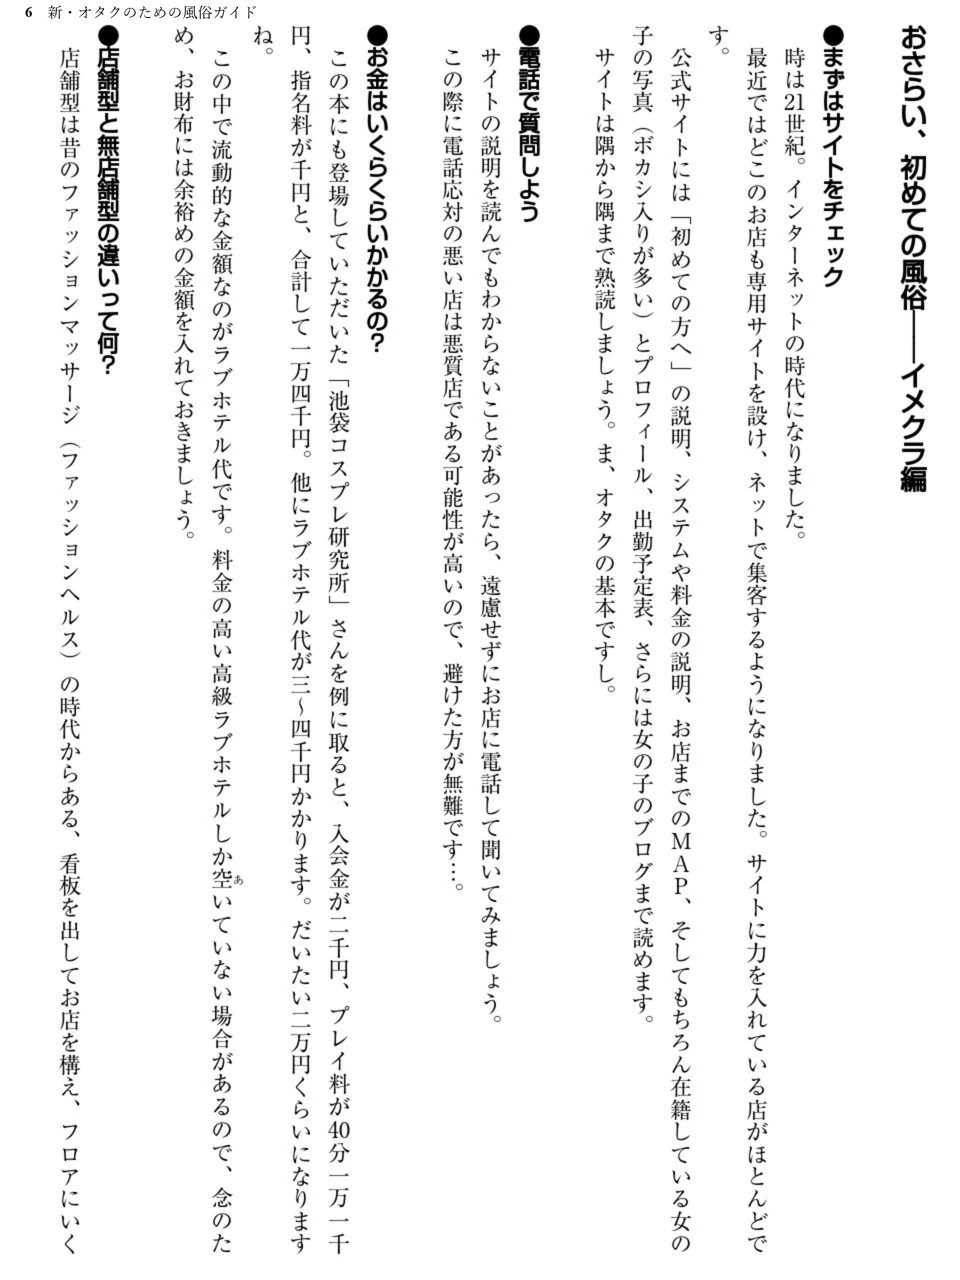 6 新・オタクのための風俗ガイド
おさらい、初めての風俗――イメクラ編
●まずはサイトをチェック
時は21世紀。インターネットの時代になりました。
最近ではどこのお店も専用サイトを設け、ネットで集客するようになりました。サイトに力を入れている店がほとんどで
す。
公式サイトには「初めての方へ」の説明、システムや料金の説明、お店までのMAP、そしてもちろん在籍している女の
子の写真（ボカシ入りが多い）とプロフィール、出勤予定表、さらには女の子のブログまで読めます。
サイトは隅から隅まで熟読しましょう。ま、オタクの基本ですし。
●電話で質問しよう
サイトの説明を読んでもわからないことがあったら、遠慮せずにお店に電話して聞いてみましょう。
この際に電話応対の悪い店は悪質店である可能性が高いので、避けた方が無難です…。
●お金はいくらくらいかかるの？
この本にも登場していただいた「池袋コスプレ研究所」さんを例に取ると、入会金が二千円、プレイ料が40分一万一千
円、指名料が千円と、合計して一万四千円。他にラブホテル代が三～四千円かかります。だいたい二万円くらいになります
ね。
この中で流動的な金額なのがラブホテル代です。料金の高い高級ラブホテルしか空あいていない場合があるので、念のた
め、お財布には余裕めの金額を入れておきましょう。
●店舗型と無店舗型の違いって何？
店舗型は昔のファッションマッサージ（ファッションヘルス）の時代からある、看板を出してお店を構え、フロアにいく